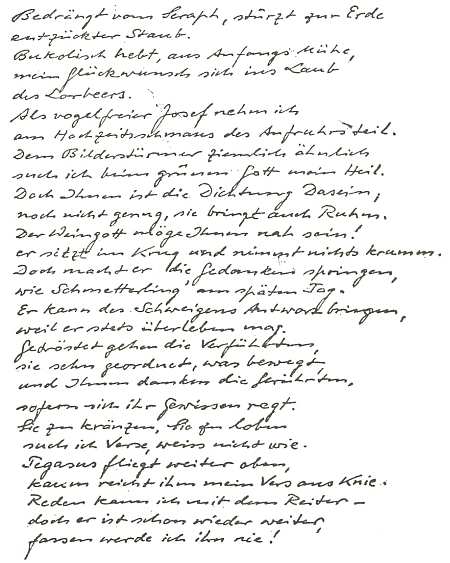 Bedrängt vom Seraph, stürzt zur Erde
entzückter Staub.
Bukolisch hebt, aus Anfangs Mühe,
mein Glückwunsch sich ins Laub
des Lorbeers.
Als vogelfreier Josef nehm ich
am Hochzeitsschmaus des Aufruhrs teil.
Dem Bilderstürmer ziemlich ähnlich
such ich beim grünen Gott mein Heil.
Doch Ihnen ist die Dichtung Dasein;
noch nicht genug, sie bringt auch Ruhm.
Der Weingott möge Ihnen nah sein!
er sitzt im Krug und nimmt nichts krumm.
Doch macht er die Gedanken springen,
wie Schmetterling am späten Tag.
Er kann des Schweigens Antwort bringen,
weil er stets überleben mag.
Getröstet gehen die Verführten,
sie sehn geordnet, was bewegt,
und Ihnen danken die Gerührten,
sofern sich ihr Gewissen regt.
Sie zu kränzen, Sie zu loben
such ich Verse, weiss nicht wie.
Pegasus fliegt weiter oben,
kaum reicht ihm mein Vers ans Knie.
Reden kann ich mit dem Reiter –
doch er ist schon wieder weiter,
fassen werde ich ihn nie!